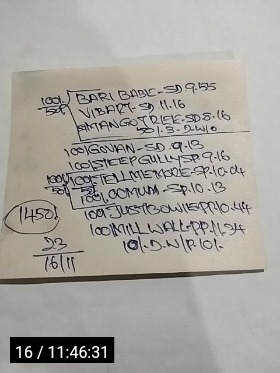 100/50 BARI BABIE-SD 9.55
VIBART-SD 11.16
MANGOTREE SD 5.16
50/.3-D.W/0
100/GOVAN-SD 9.13
100/STEEPGULLY SP 9.16
100/TELLMEMORE-SP.10.04
100/.OOMUM-SP.10.13
100/JUSTBOWIE PP.10.44
100/MILLWALL-PP.11.54
10/-D.W/P.10/-
1450/
D3
16/11
16 / 11:46:31